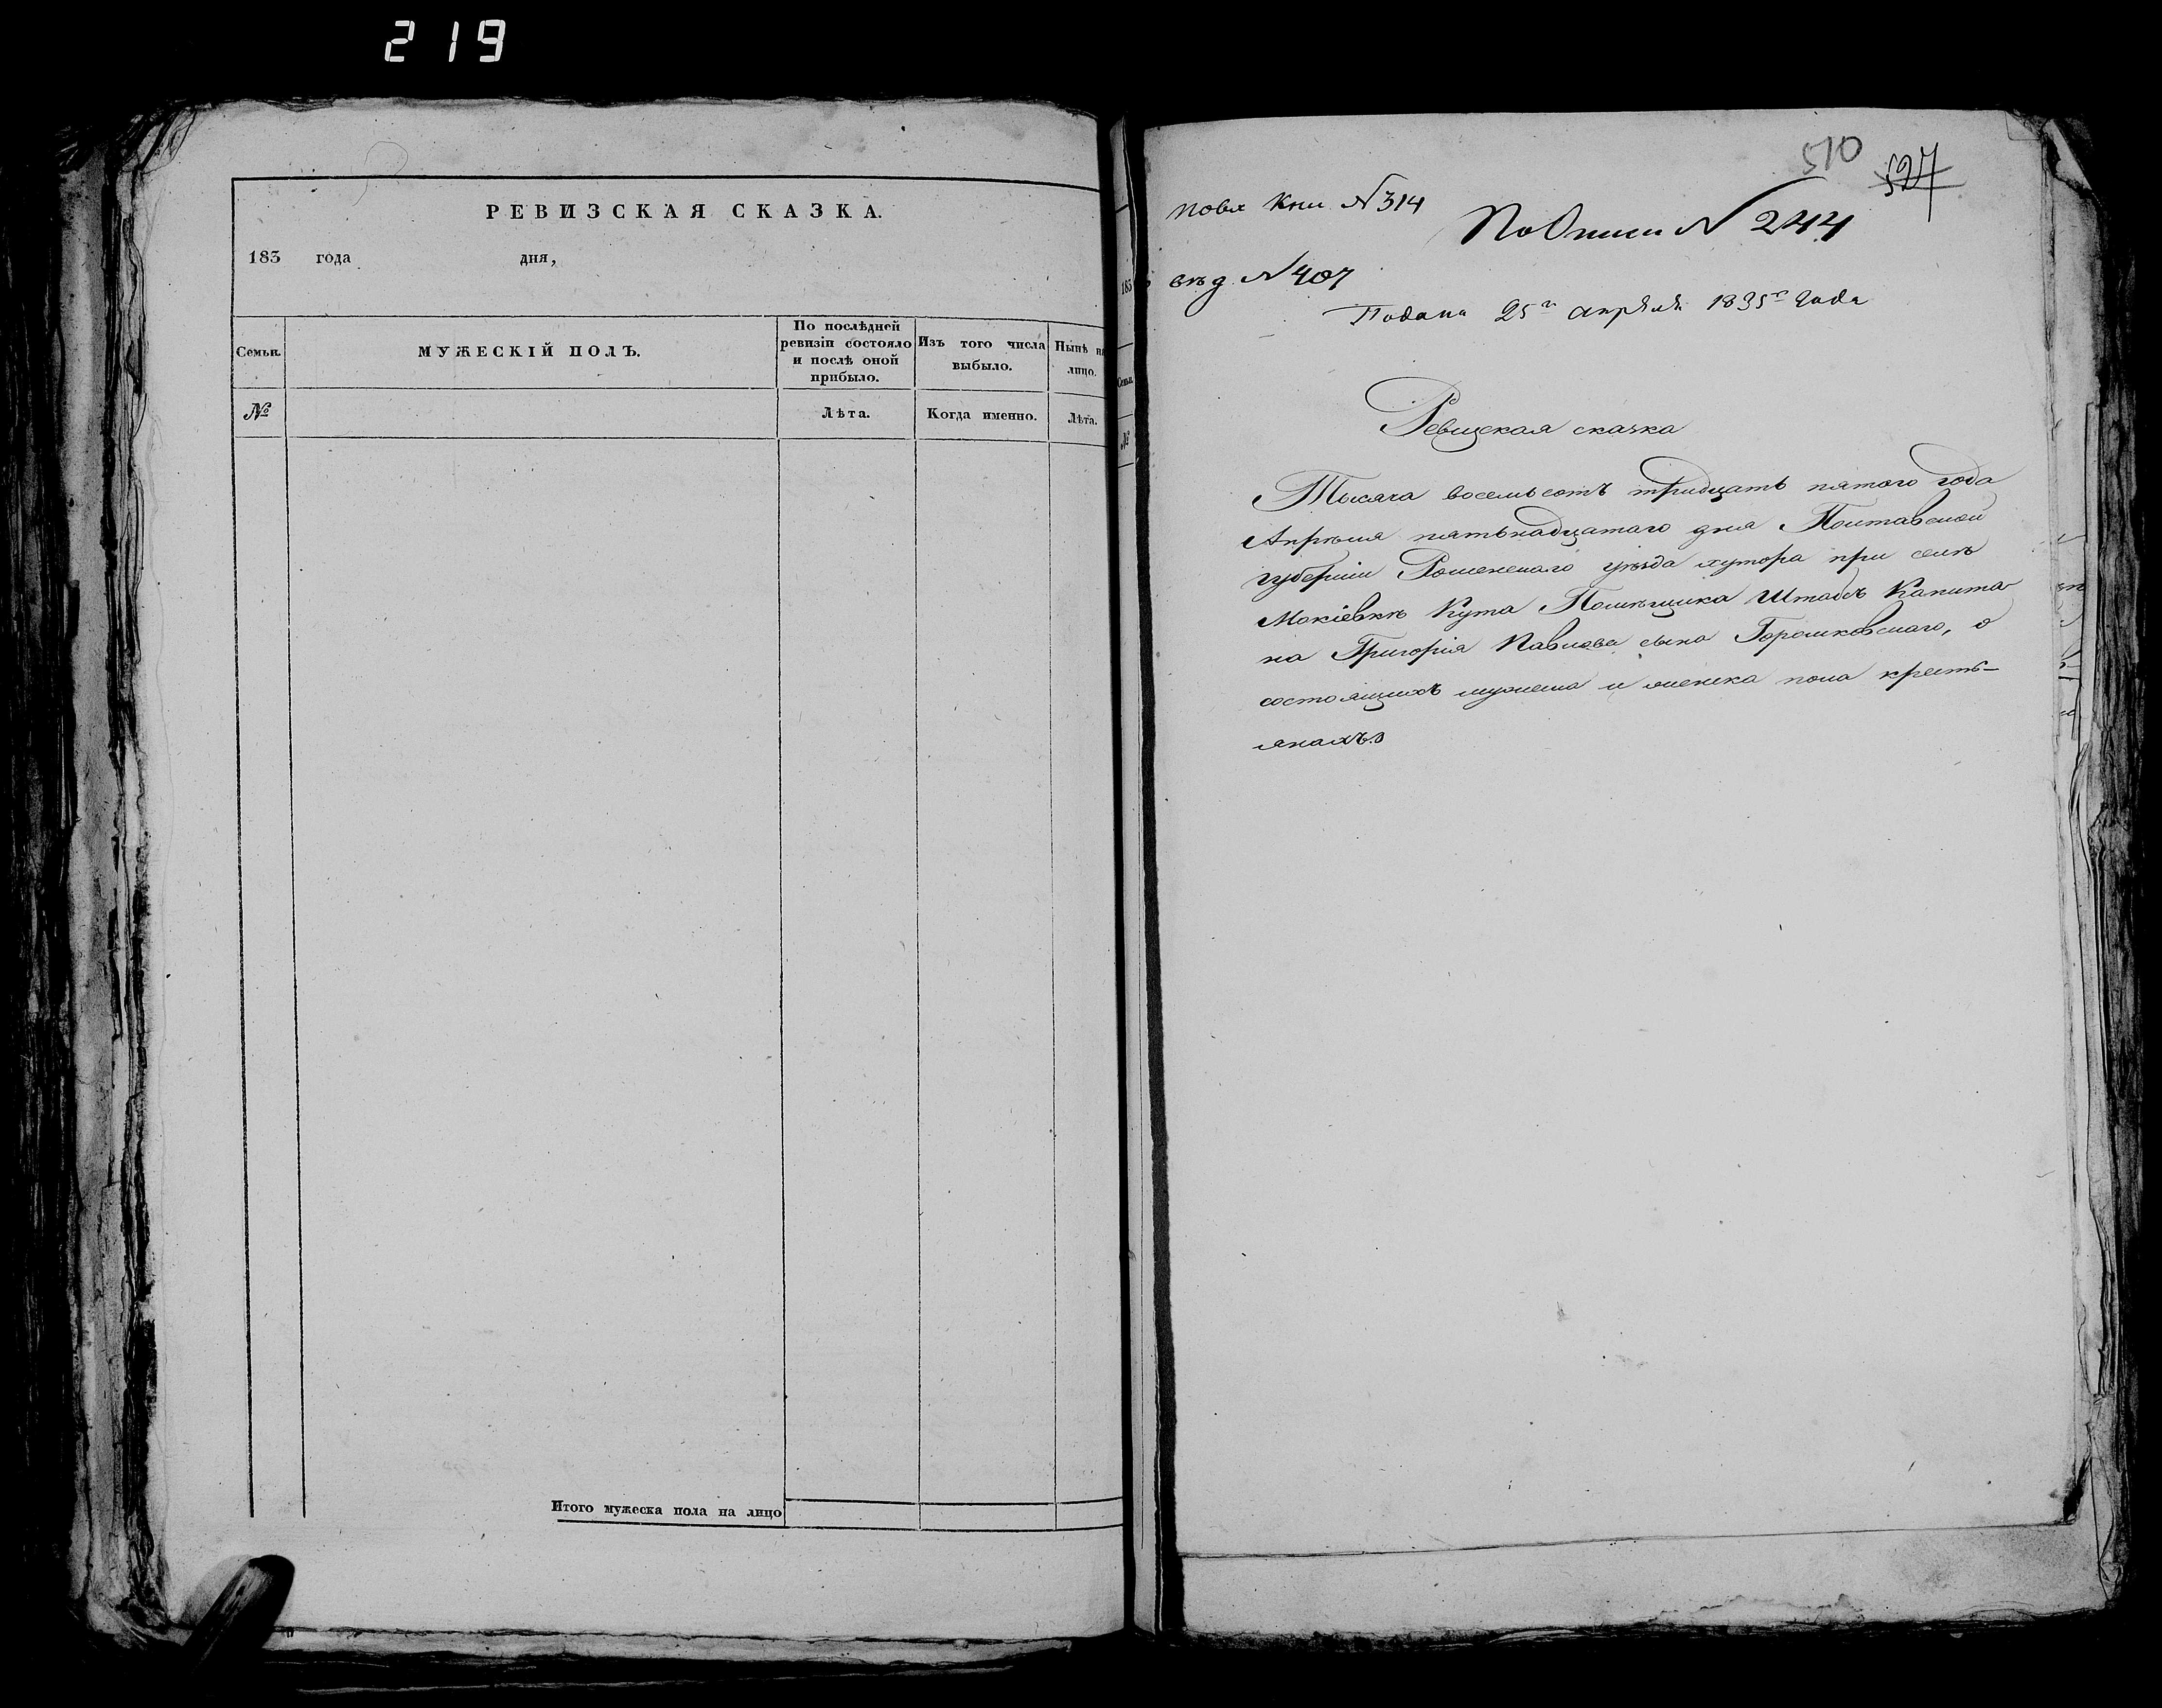 219
РЕВИЗСКАЯ СКАЗКА.
183 года дня,
Семьи.
МУЖЕСКІЙ ПОЛЪ.
По послѣдней
ревизіи состояло
и послѣ оной
прибыло.
Изъ того числа
выбыло.
Нынѣ на
лицо.
№
Лѣта.
Когда именно.
Лѣта.
Итого мужеска пола на лицо
510
527
Кни № 314
По Описи № 244
№ 407
Подана 25го апрѣля 1835го Года
Ревизская сказка
Тысяча восемьсотъ тридцать пятого года
Апрѣля пятьнадцатаго дня Полтавской
губерніи Роменскаго уѣзда хутора при селѣ
Мокіевкѣ Кута Помѣщика Штабсъ Капита-
на Григорія Павлова сына Горошковскаго, о
состоящихъ мужеска и женска пола кресть-
янахъ.